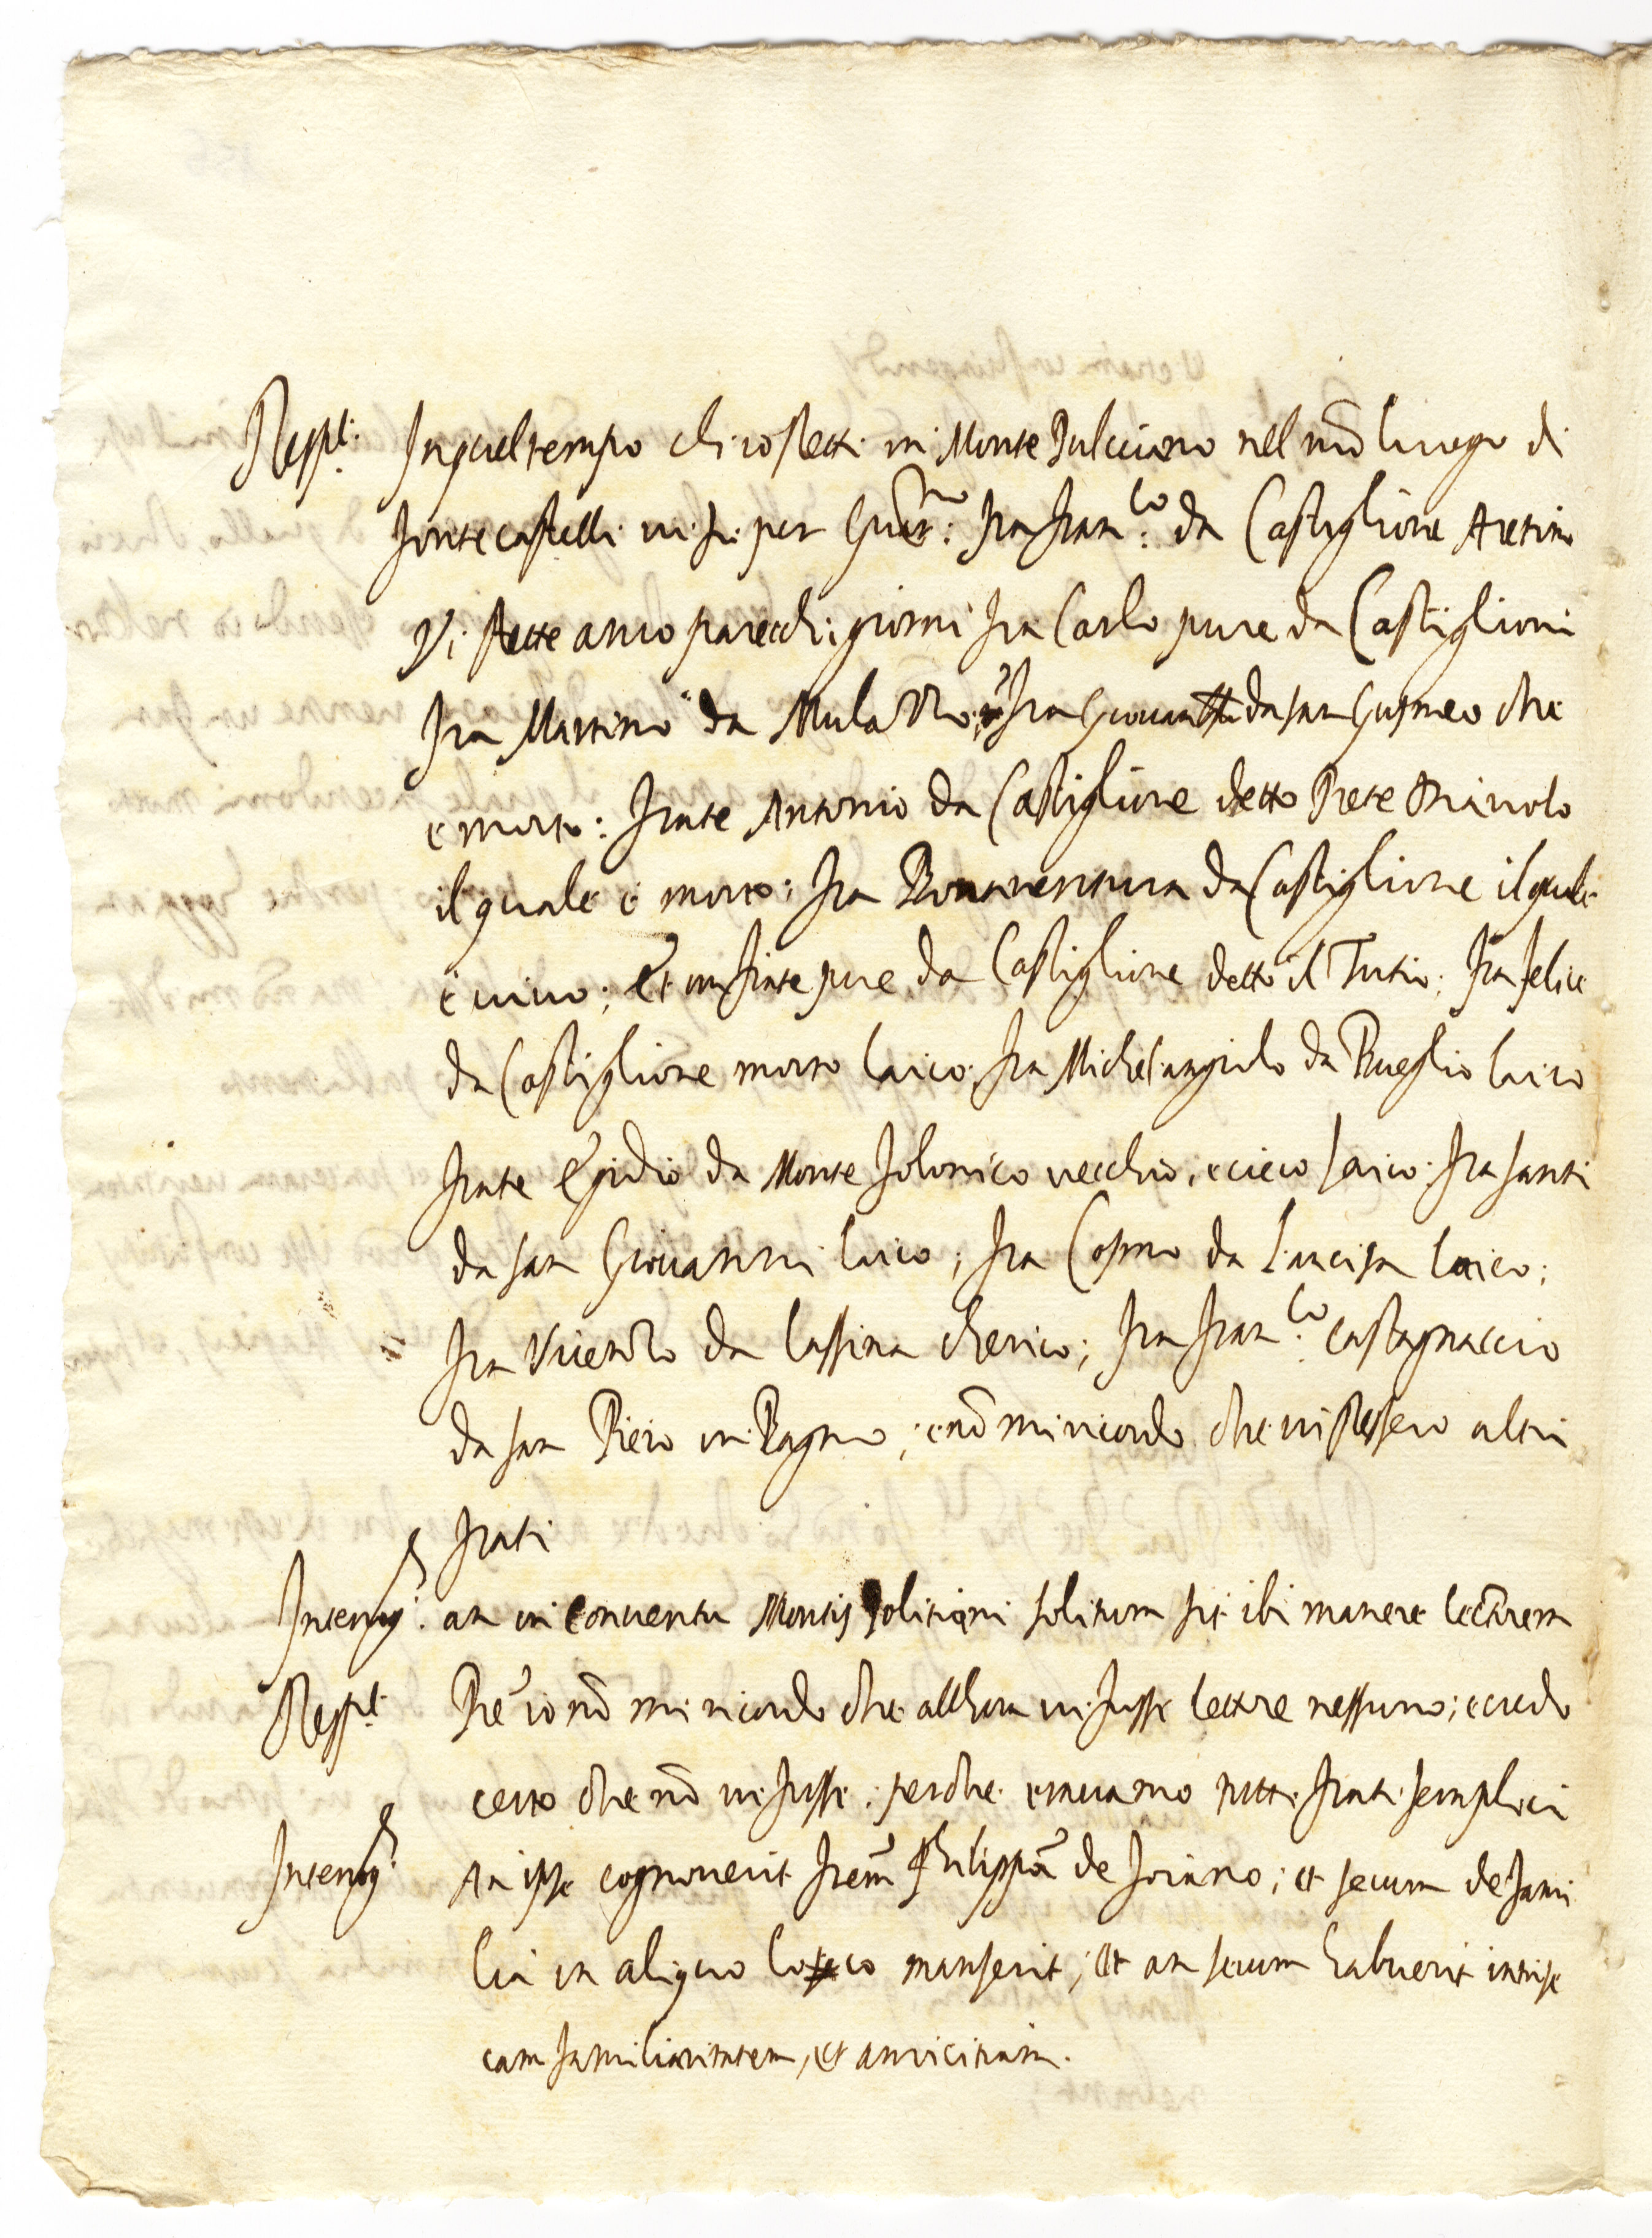 Respt. In quel tempo ch'io stetti in Monte Pulciano nel nrō luogo di
fonte castelli vi fu per Guar:no fra fran:co da Castiglione Aretino
Vi stette anco parecchi giorni fra Carlo pure da Castiglioni
fra Martino da Mulazzo, fra Giouanni da san Gusmeo che
e morto: frate Antonio da Castiglione detto Prete
il quale è morto: fra Bonaventura da Castiglione il quale
è uiuo; Et un frate pure da Castiglione detto il Tutio; fra felice
da Castiglione morto laico. fra Michelangiolo da Bueglio laico
frate Egidio da Monte folonico vecchio, e cieco laico. fra santi
da san Giouanni laico; fra Cosmo da Lancisa laico;
fra Vicenzo da lassina cherico; fra fran:co castagnaccio
da san Piero in Bagno; e nō mi ricordo che vi stessero altri
frati
Interrog.s an in conuentu Montis Politiani solitum sit ibi manere lectōrem
Respt. Pre io nō mi ricordo che allhora vi fusse lettore nessuno; e credo
certo che nō vi fusse: perche erauamo tutti frati semplici
Interrog.s An ipse cognouerit frem Philippū de foiano; et secum de fami
lia in aliquo loco manserit; et an secum habuerit intrise
cam familiaritatem, et amicitiam.